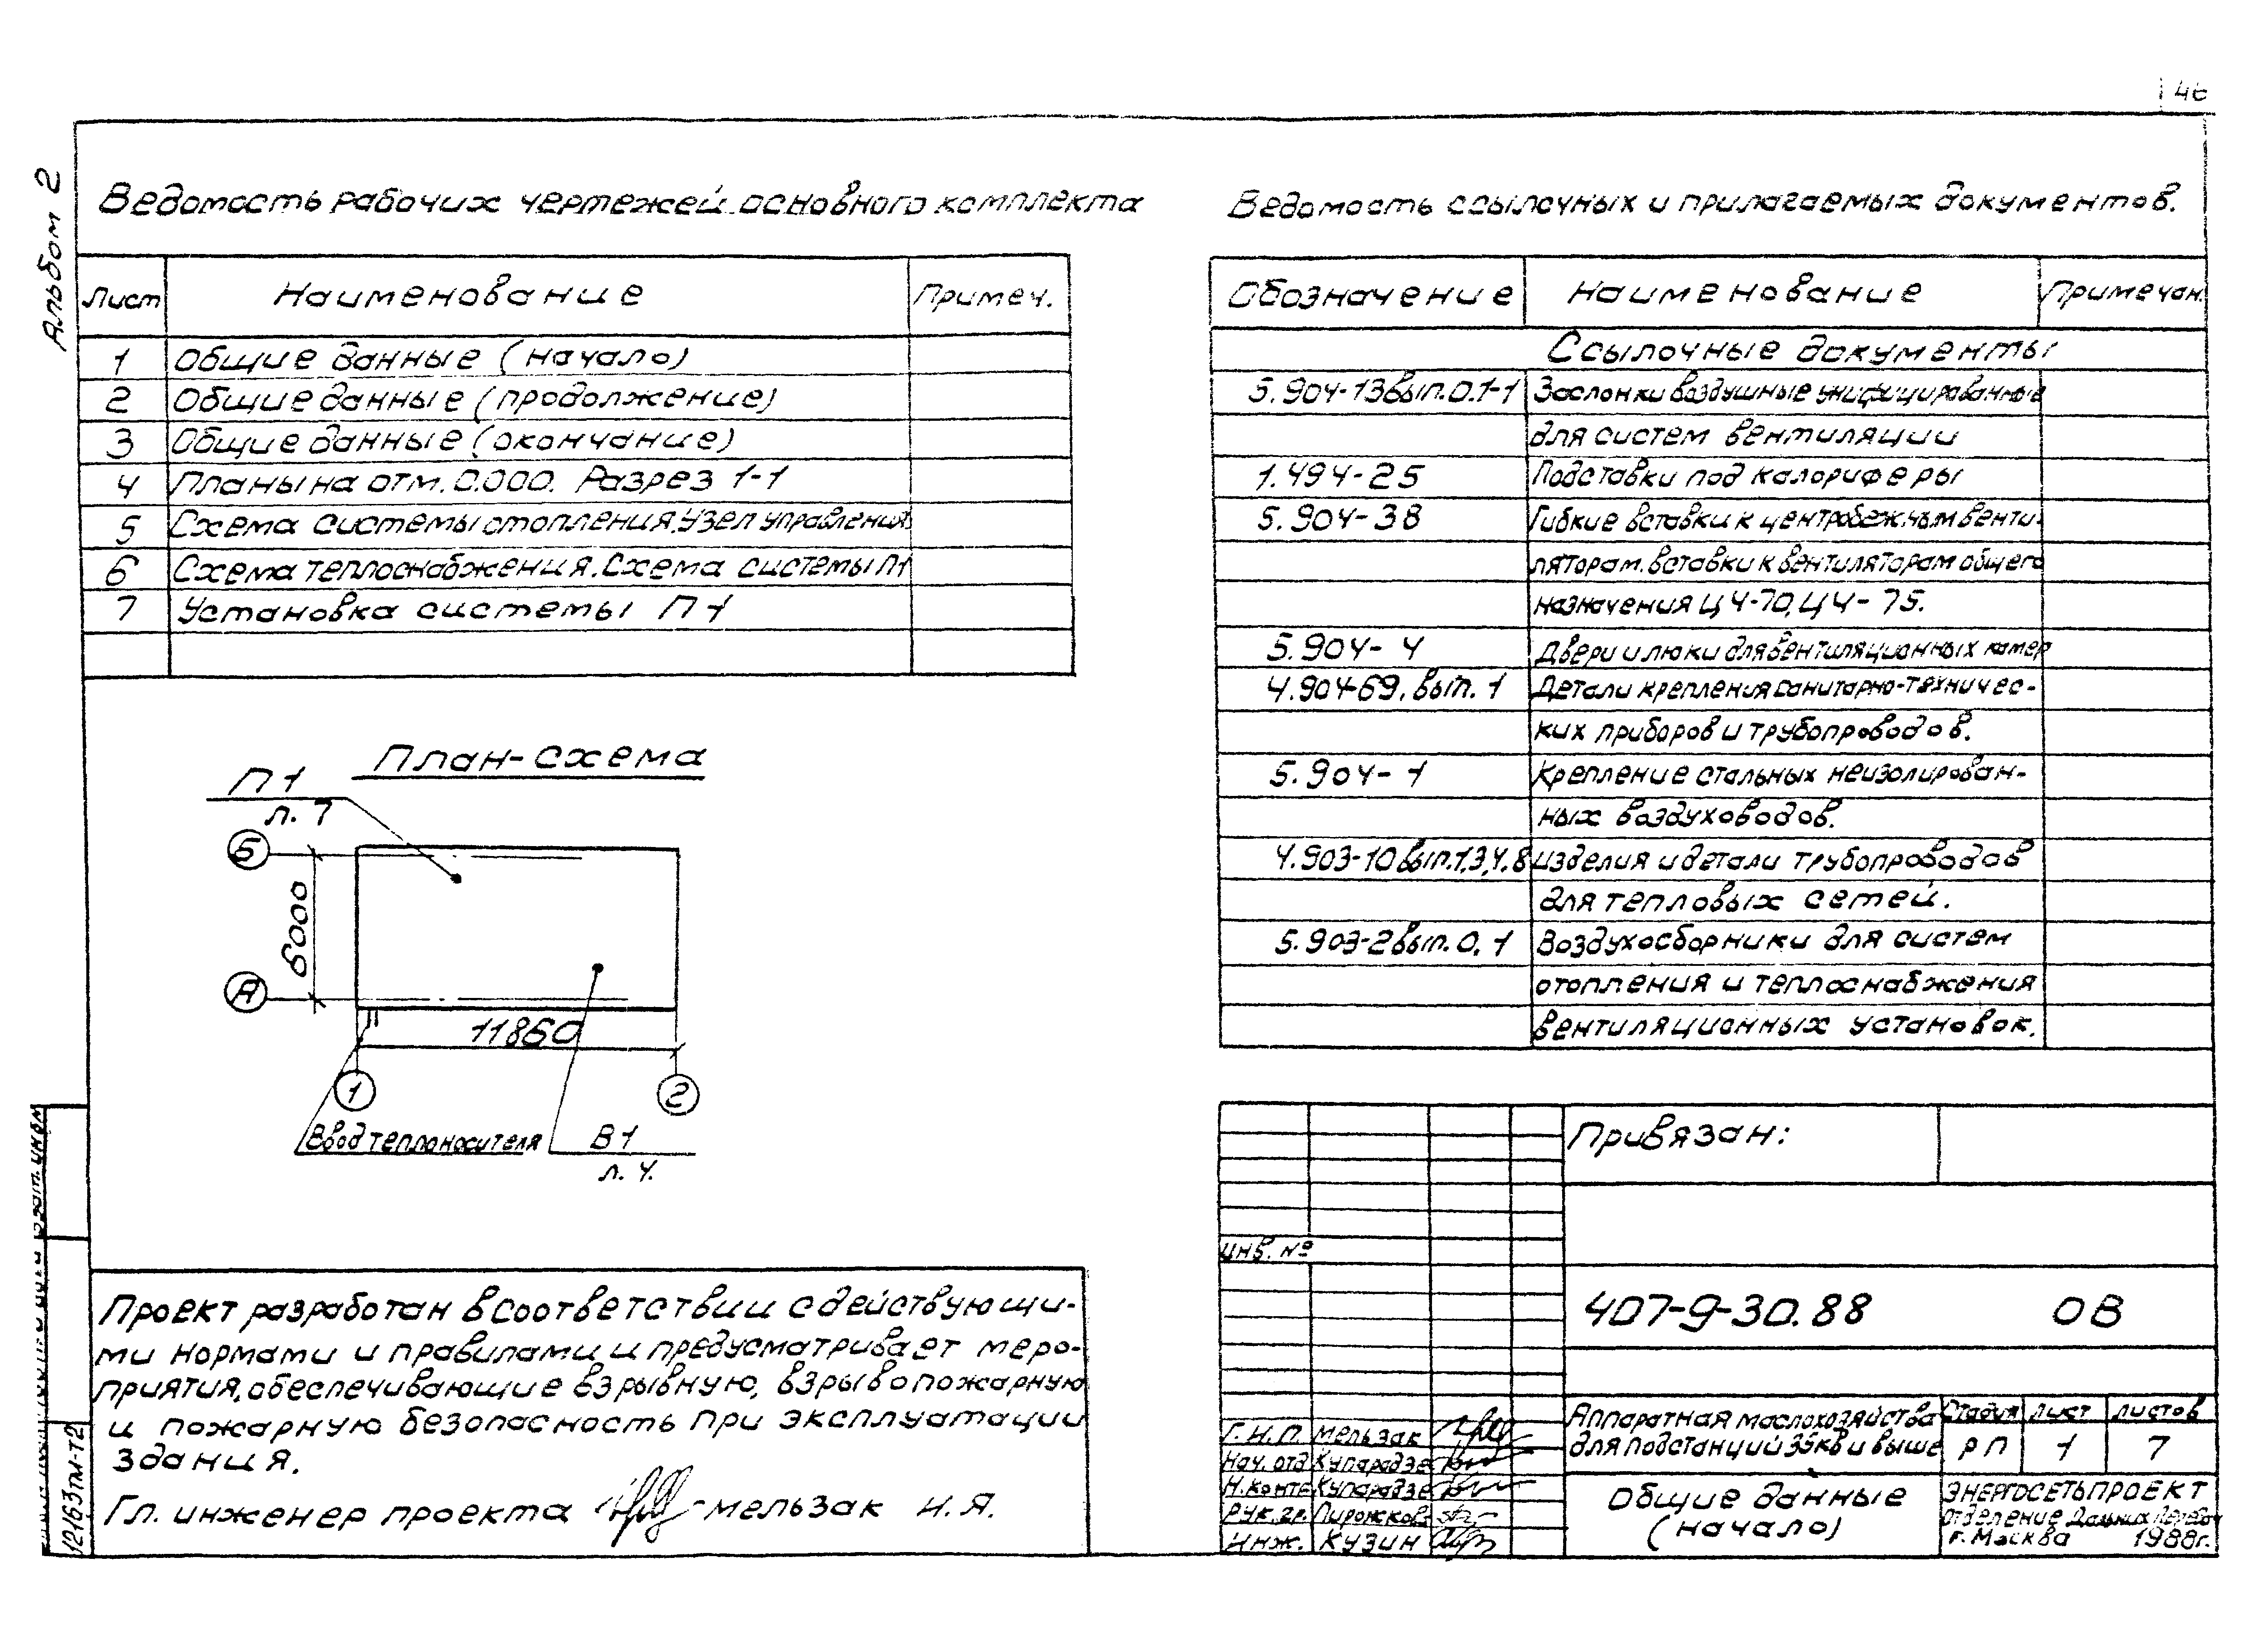 46
Альбом 2
Ведомость рабочих чертежей основного комплекта
Лист Наименование Примеч.
1 Общие данные (начало)
2 Общие данные (продолжение)
3 Общие данные (окончание)
4 Планы на отм. 0.000. Разрез 1-1
5 Схема системы отопления. Узел управления
6 Схема теплоснабжения. Схема системы П1
7 Установка системы П1
Ведомость ссылочных и прилагаемых документов.
Обозначение Наименование Примечан.
Ссылочные документы
5.904-13 вып. 0.1-1 Заслонки воздушные унифицированные
для систем вентиляции
1.494-25 Подставки под калориферы
5.904-38 Гибкие вставки к центробежным венти-
ляторам. Вставки к вентиляторам общего
назначения Ц4-70, Ц4-75.
5.904-4 Двери и люки для вентиляционных камер
4.904-69. вып. 1 Детали крепления санитарно-техничес-
ких приборов и трубопроводов.
5.904-1 Крепление стальных неизолирован-
ных воздуховодов.
4.903-10 вып. 1,3,4.8 Изделия и детали трубопроводов
для тепловых сетей.
5.903-2 вып. 0,1 Воздухосборники для систем
отопления и теплоснабжения
вентиляционных установок.
План-схема
П1
л. 7
Б
6000
А
11860
1
2
Ввод теплоносителя
В1
л. 4.
Проект разработан в соответствии с действующи-
ми нормами и правилами и предусматривает меро-
приятия, обеспечивающие взрывную, взрывопожарную
и пожарную безопасность при эксплуатации
здания.
Гл. инженер проекта Мельзак И.Я.
12163тм-т2
Привязан:
Инв. №
407-9-30.88 ОВ
Аппаратная маслохозяйства
для подстанций 35кв и выше
Стадия Лист Листов
РП 1 7
Г.И.П. Мельзак
Нач. отд Купарадзе
Н.контр Купарадзе
Рук. гр. Пирожков
Инж. Кузин
Общие данные
(начало)
ЭНЕРГОСЕТЬПРОЕКТ
Отделение Дальних передач
г. Москва 1988г.